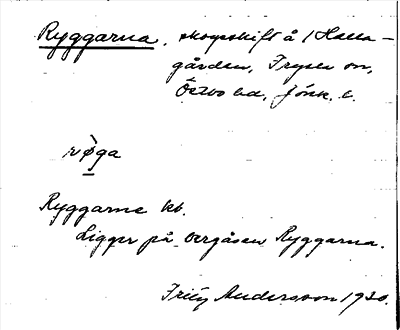 Ryggarna, skogsskift å 1 Halla-
gården, Fryele sn,
Östbo hd, Jönk. l.
røga
Ryggarne kb.
Ligger på bergåsen Ryggarna.
Fritz Andersson 1930.